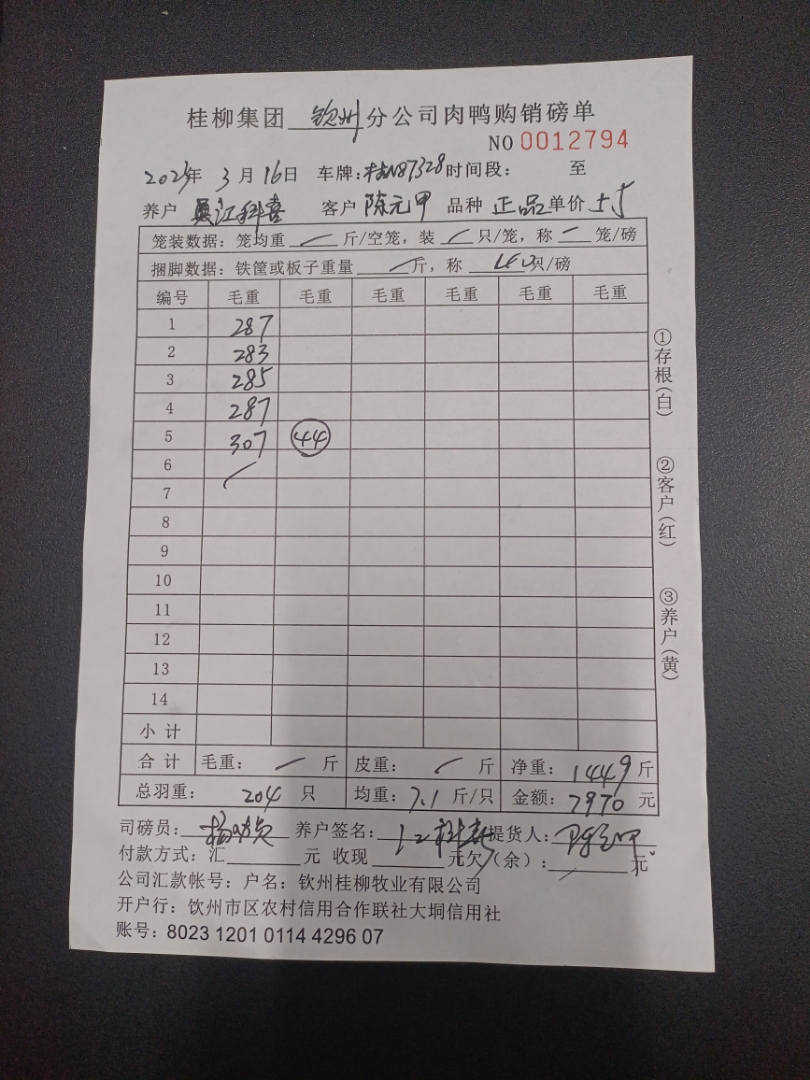 桂柳集团 钦州 分公司肉鸭购销磅单
NO 0012794
2023年 3 月 16日 车牌:桂N87328 时间段: 至
养户 江科喜 客户 陈元甲 品种 正品 单价 5.5
笼装数据:笼均重 / 斤/空笼,装 / 只/笼,称 / 笼/磅
捆脚数据:铁筐或板子重量 / 斤,称 40 只/磅
编号 毛重 毛重 毛重 毛重 毛重 毛重
1 287
2 283
3 285
4 287
5 307 44
6 /
7
8
9
10
11
12
13
14
小计
合计 毛重: / 斤 皮重: / 斤 净重: 1449 斤
总羽重: 204 只 均重: 7.1 斤/只 金额: 7970 元
司磅员: 养户签名: 江科喜 提货人: 陈元甲
付款方式:汇 元 收现 元欠(余): 元
公司汇款帐号:户名:钦州桂柳牧业有限公司
开户行:钦州市区农村信用合作联社大垌信用社
账号:8023 1201 0114 4296 07
①存根(白)
②客户(红)
③养户(黄)